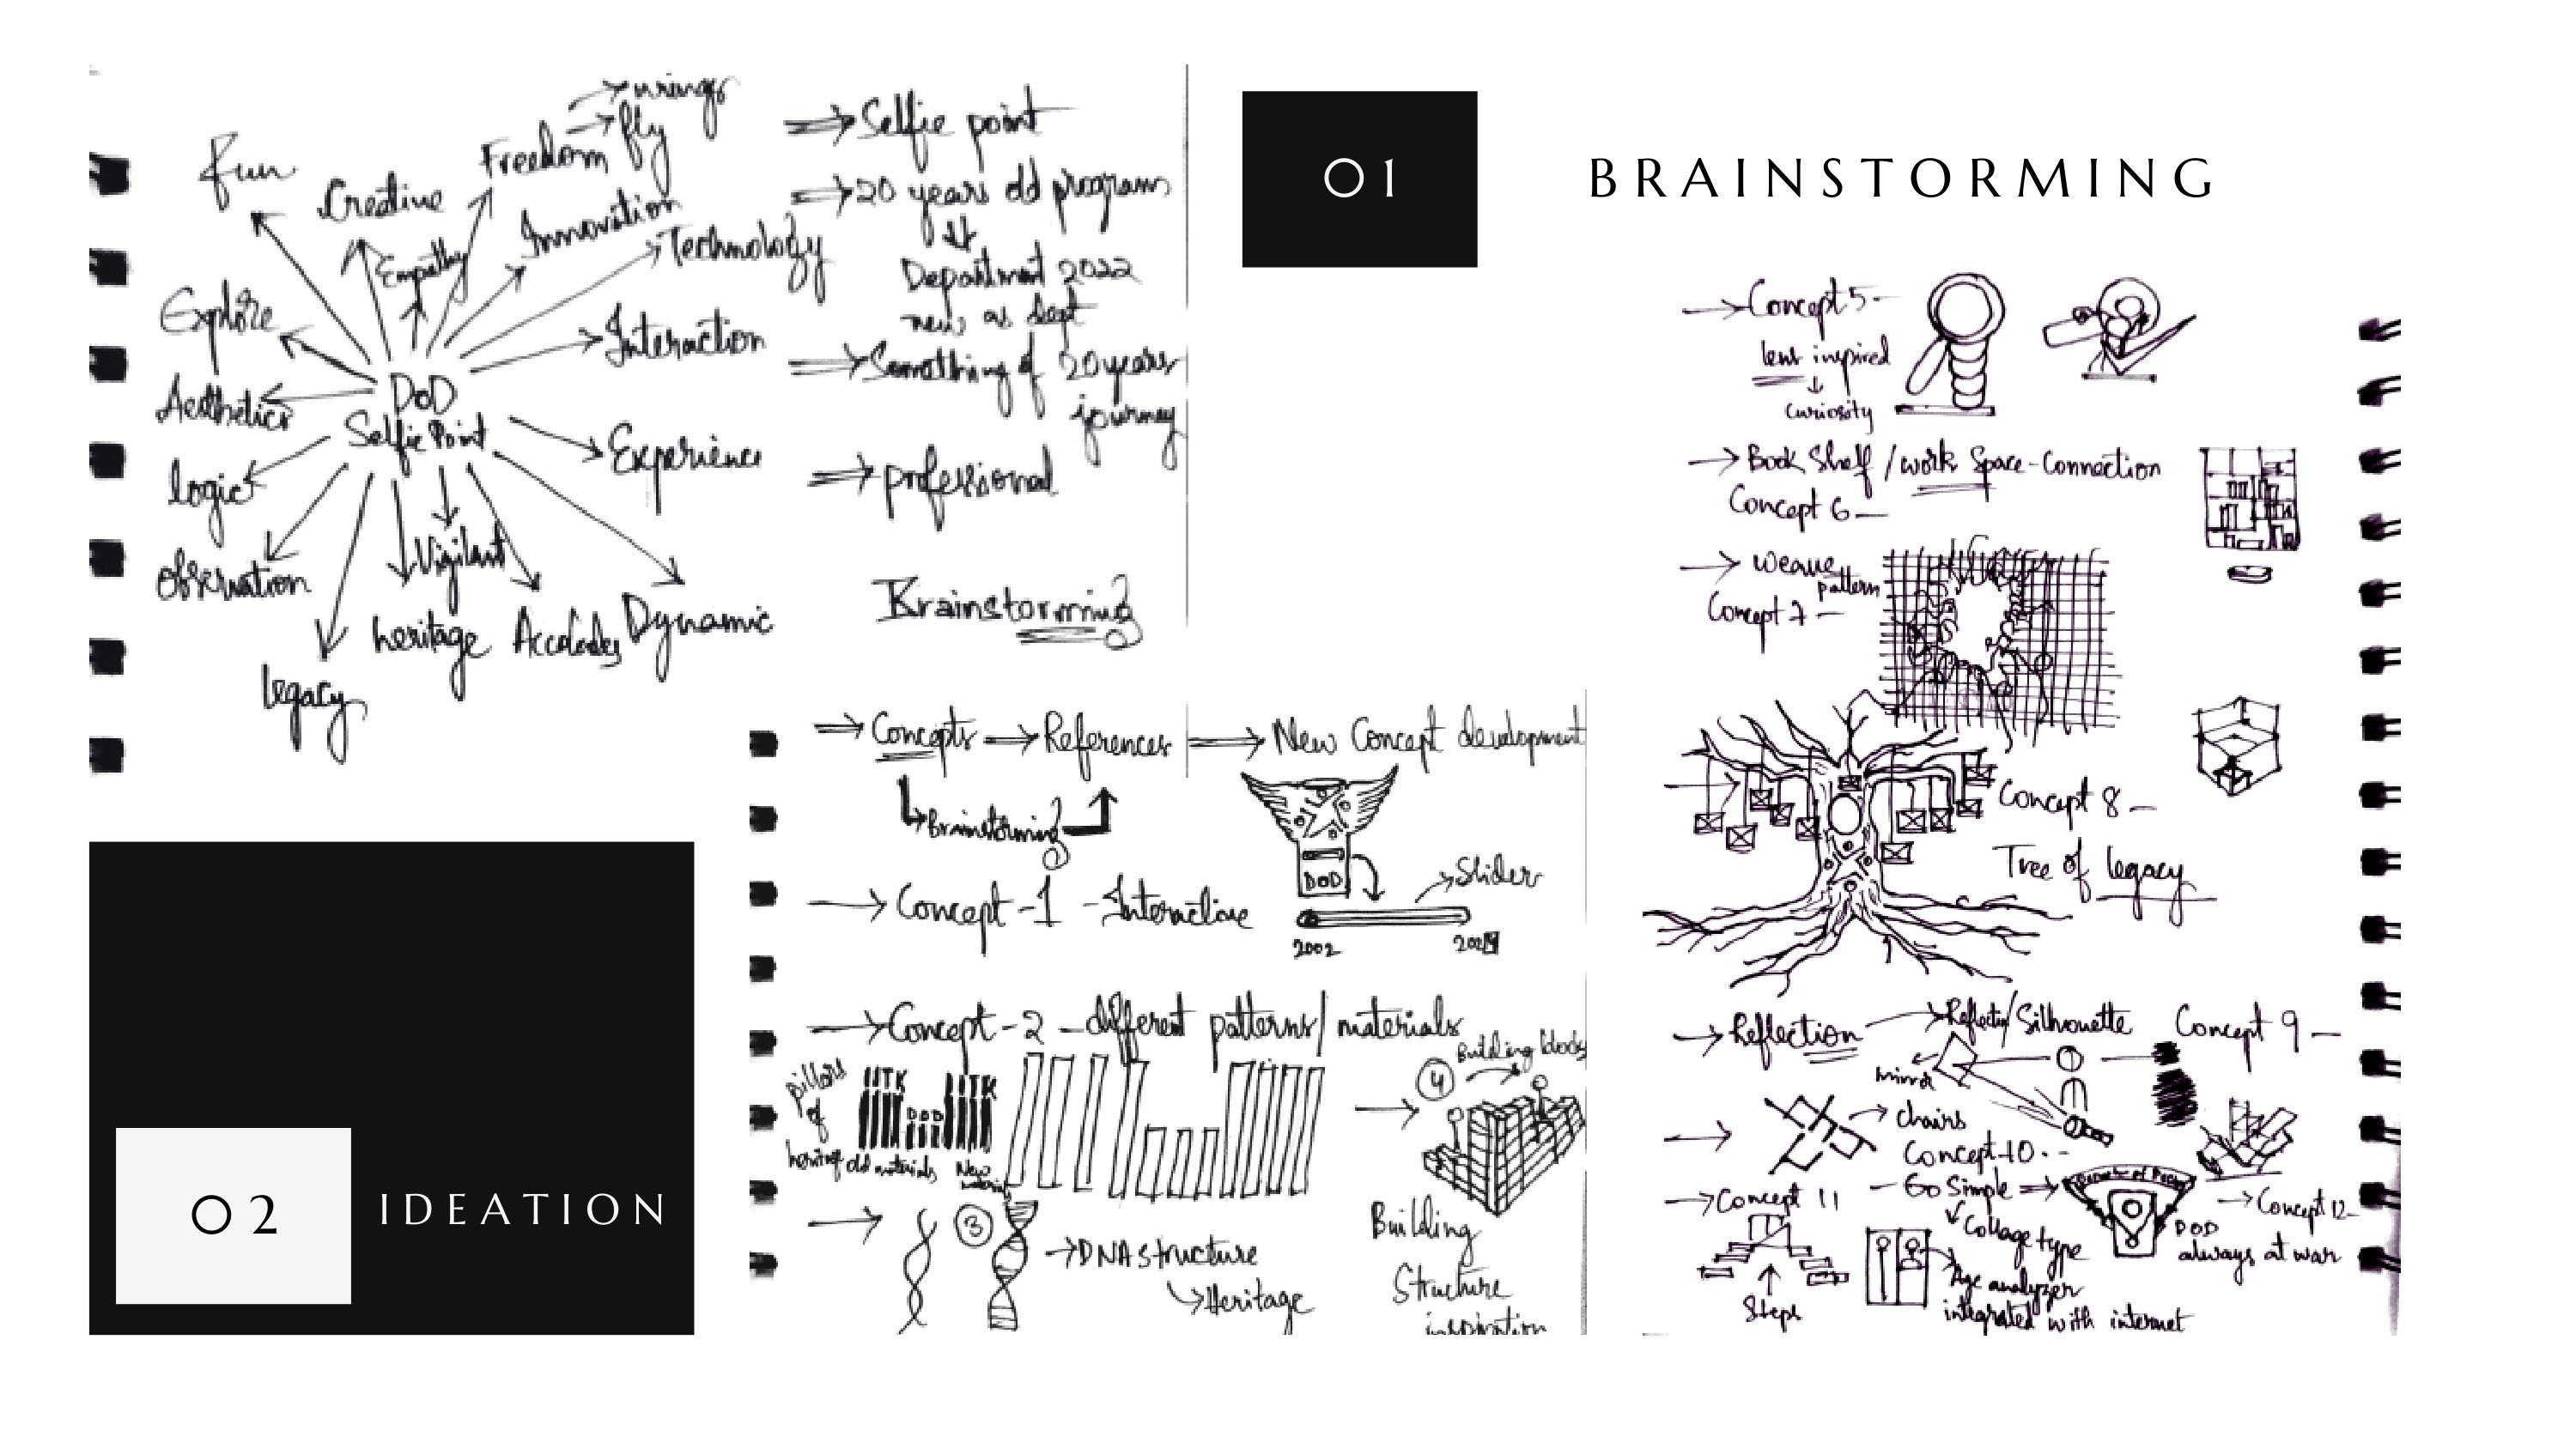 wings
fly
Freedom
fun
Creative
Empathy
Innovation
Technology
Explore
Interaction
Aesthetics
DoD
Selfie Point
Experience
logic
Vigilant
observation
heritage
Accolades
Dynamic
legacy
Selfie point
20 years old program
Department 2022
new as dept
Something of 20 years
journey
professional
Brainstorming
01
BRAINSTORMING
02
IDEATION
Concepts
References
New Concept development
Brainstorming
DOD
Slider
2002
Concept-1 - Interactive
Concept-2 - different patterns/materials
pillars
of
heritage
IITK
IITK
DOD
old materials
New
materials
4
Building blocks
3
DNA structure
Heritage
Building
Structure
inspiration
Concept 5-
lens inspired
curiosity
Book Shelf / work Space-Connection
Concept 6-
weave
pattern
Concept 7-
Concept 8-
Tree of legacy
Reflection
Reflection/Silhouette
Concept 9-
mirror
chairs
Concept-10--
Concept 11
- Go Simple
Concept 12-
Collage type
DOD
always at war
Steps
Age analyzer
integrated with internet